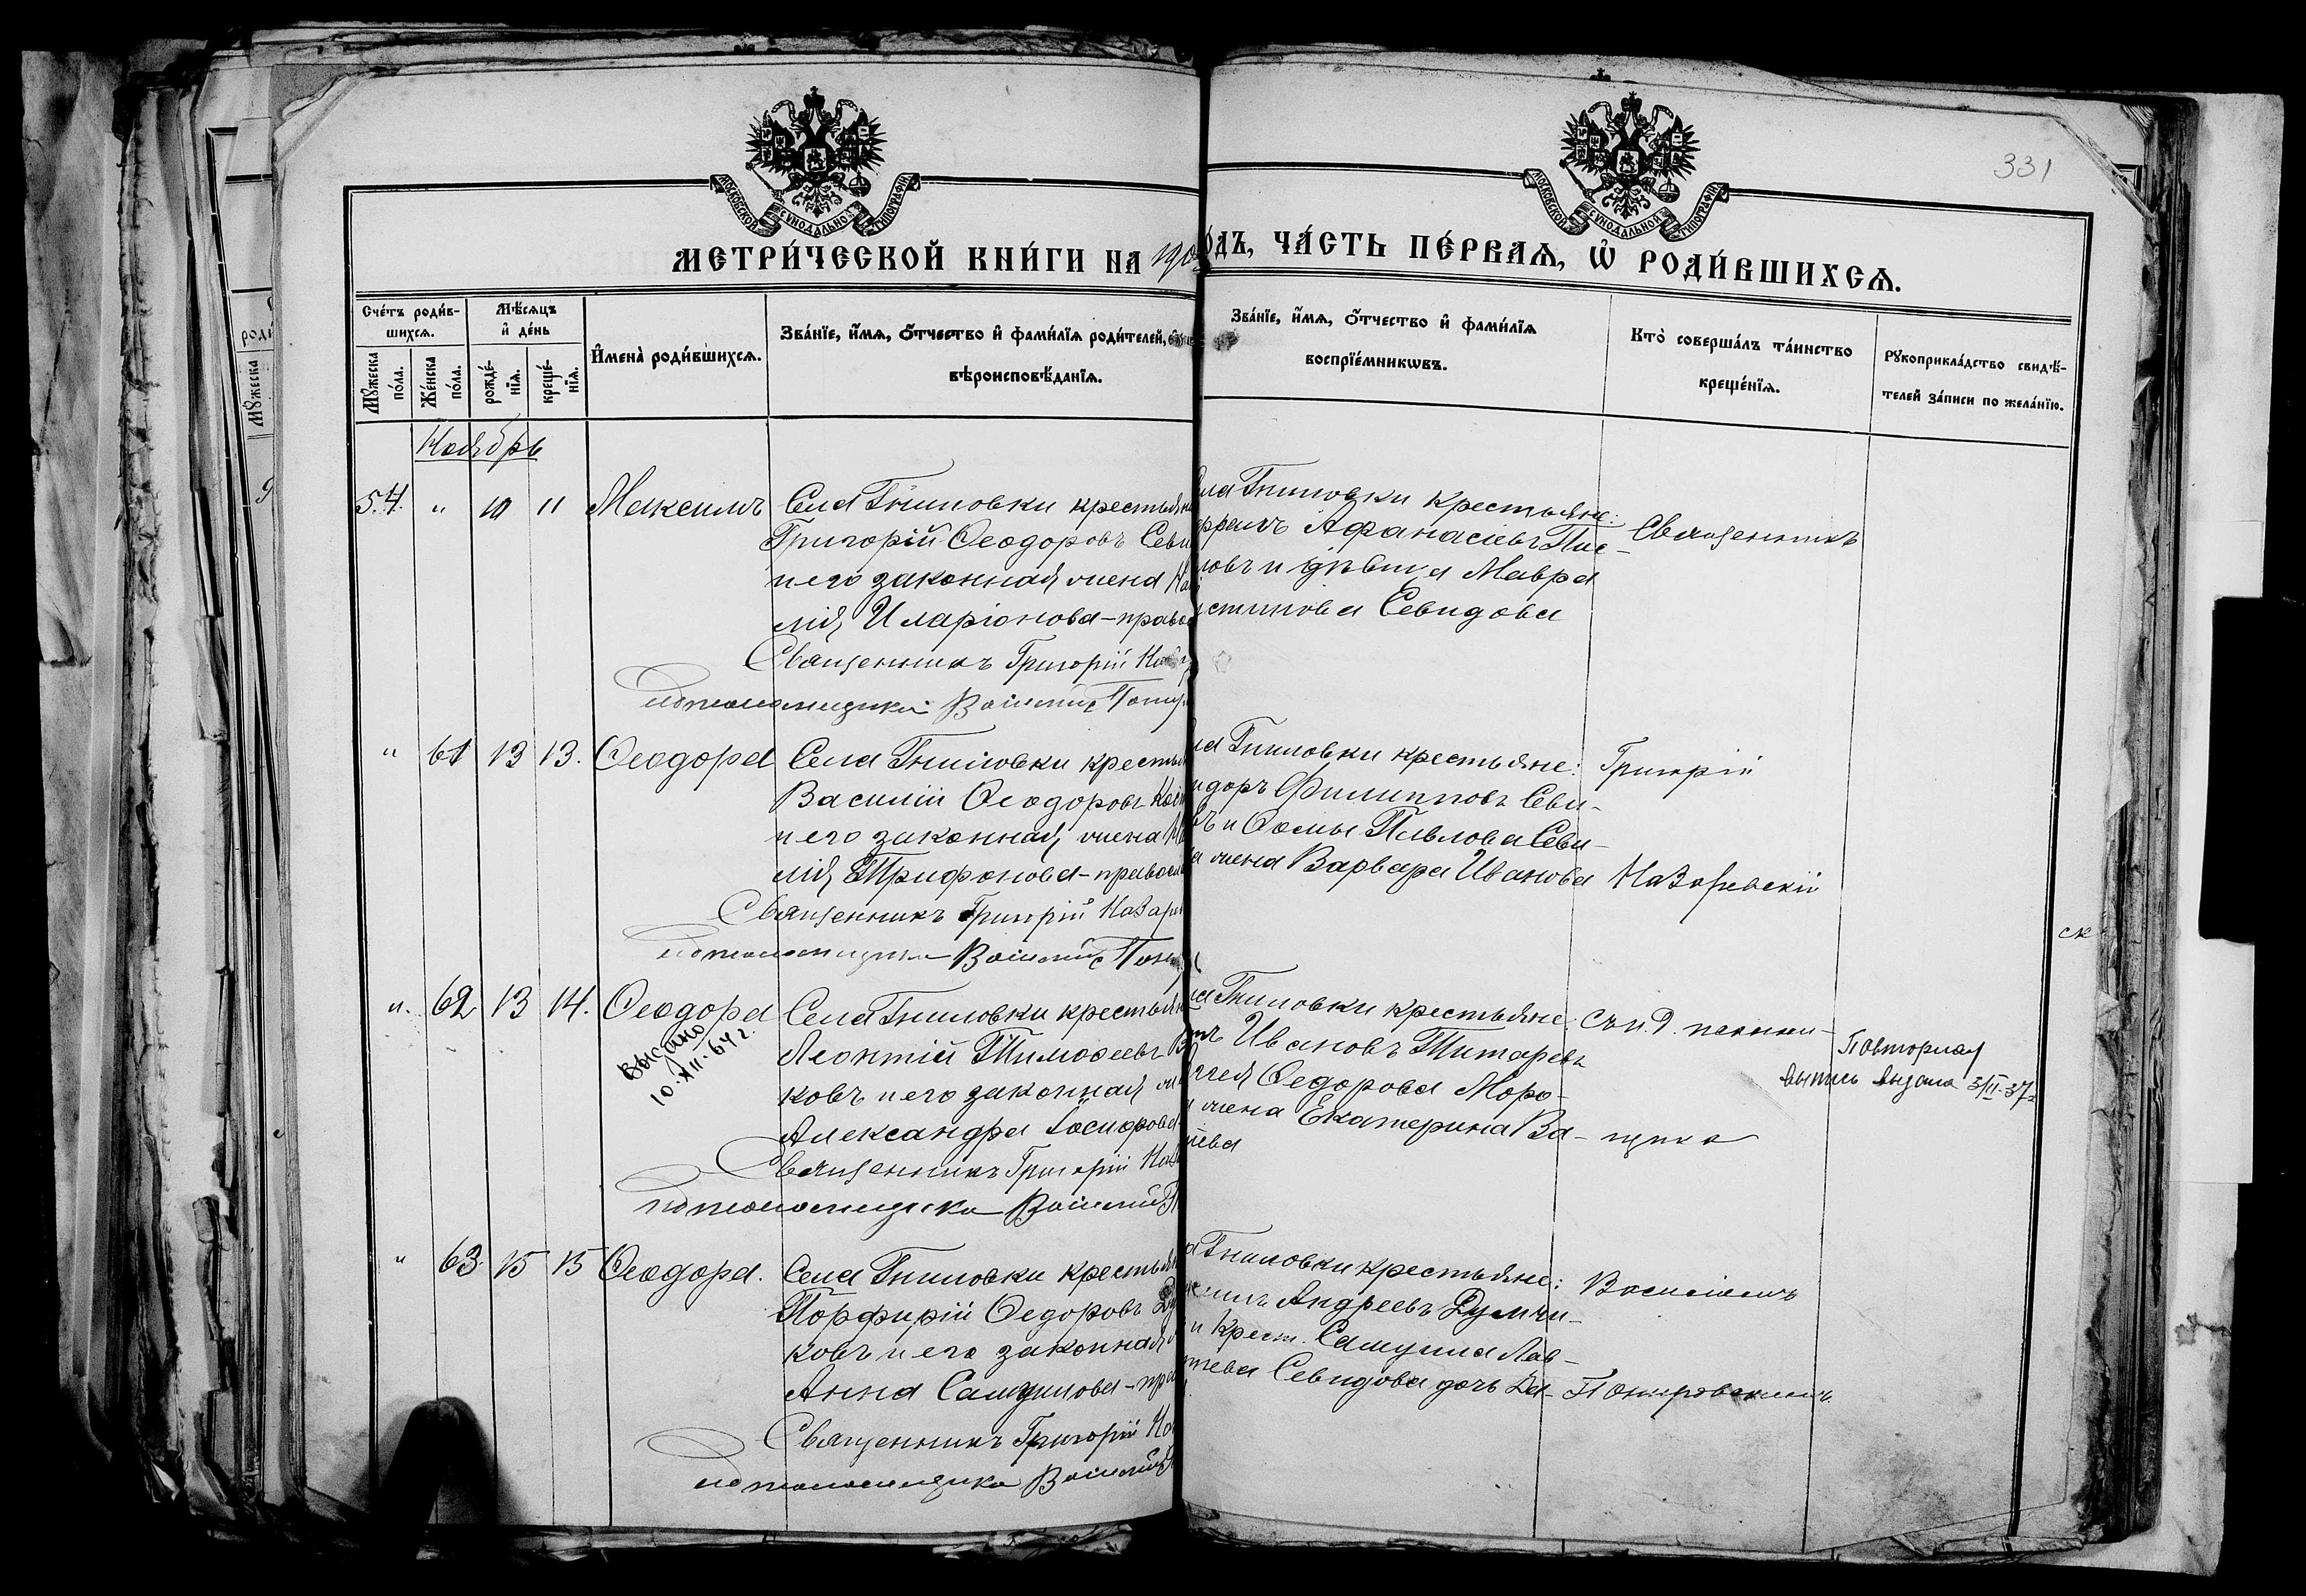 331
МОСКОВСКОЙ СѴНОДАЛЬНОЙ ТИПОГРАФІИ
МОСКОВСКОЙ СѴНОДАЛЬНОЙ ТИПОГРАФІИ
МЕТРИ́ЧЕСКОЙ КНИ́ГИ НА 190
О́ДЪ, ЧА́СТЬ ПЕ́РВАѦ, Ѡ҆ РОДИ́ВШИХСѦ.
Сче́тъ роди́в-
шихсѧ.
Мꙋ́жеска по́ла.
Же́нска по́ла.
Мѣ́сѧцъ
и҆ де́нь
рожде́-
нїѧ.
креще́-
нїѧ.
И҆мена̀ роди́вшихсѧ.
Зва́нїе, и҆́мѧ, ѻ҆́тчество и҆ фами́лїѧ роди́телей,
вѣроисповѣ́данїѧ.
Зва́нїе, и҆́мѧ, ѻ҆́тчество и҆ фами́лїѧ
воспрїе́мникѡвъ.
Кто̀ соверша́лъ та́инство
креще́нїѧ.
Рꙋкоприкла́дство свидѣ́-
телей за́писи по жела́нїю.
Ноябрь
54. " 10 11 Максимъ
Села Гниловки крестьян
Григорій Ѳеодоровъ Севи
и его законная жена
лія Иларіонова - право
Священникъ Григорій
псаломщикъ Василій
ла Гниловки крестьяне:
Афанасіевъ
овъ и дѣвица Мавра
стинова Севидова
Священникъ
" 61 13 13. Ѳеодора
Села Гниловки крестья
Василій Ѳеодоровъ
и его законная жена
лія Трифонова - правосл
Священникъ Григорій Назар
псаломщикъ Василій
ла Гниловки крестьяне:
идоръ Филипповъ Севи-
въ и Ѳомы Павлова Севи-
а жена Варвара Иванова
Григорій
Назаревскій
ск
". 62 13 14. Ѳеодора
Выдано
10.XII.64 г.
Села Гниловки крестьян
Леонтій Тимоѳеевъ
ковъ и его законная
Александра
Священникъ Григорій
псаломщикъ Василій
ла Гниловки крестьяне:
Ивановъ Титаревъ
гея Ѳедорова Моро-
жена Екатерина Ва-
ьева
съ и.д. псалом-
щика
Повторная
выпись выдана 3/II-37
" 63 15 15 Ѳеодора.
Села Гниловки крестьян
Порфирій Ѳедоровъ
ковъ и его законная
Анна Самуилова - пра
Священникъ Григорій
псаломщикъ Василій
Гниловки крестьяне:
Андреевъ Думчи-
и крест. Самуила Лав-
тьева Севидова дочь
Василіемъ